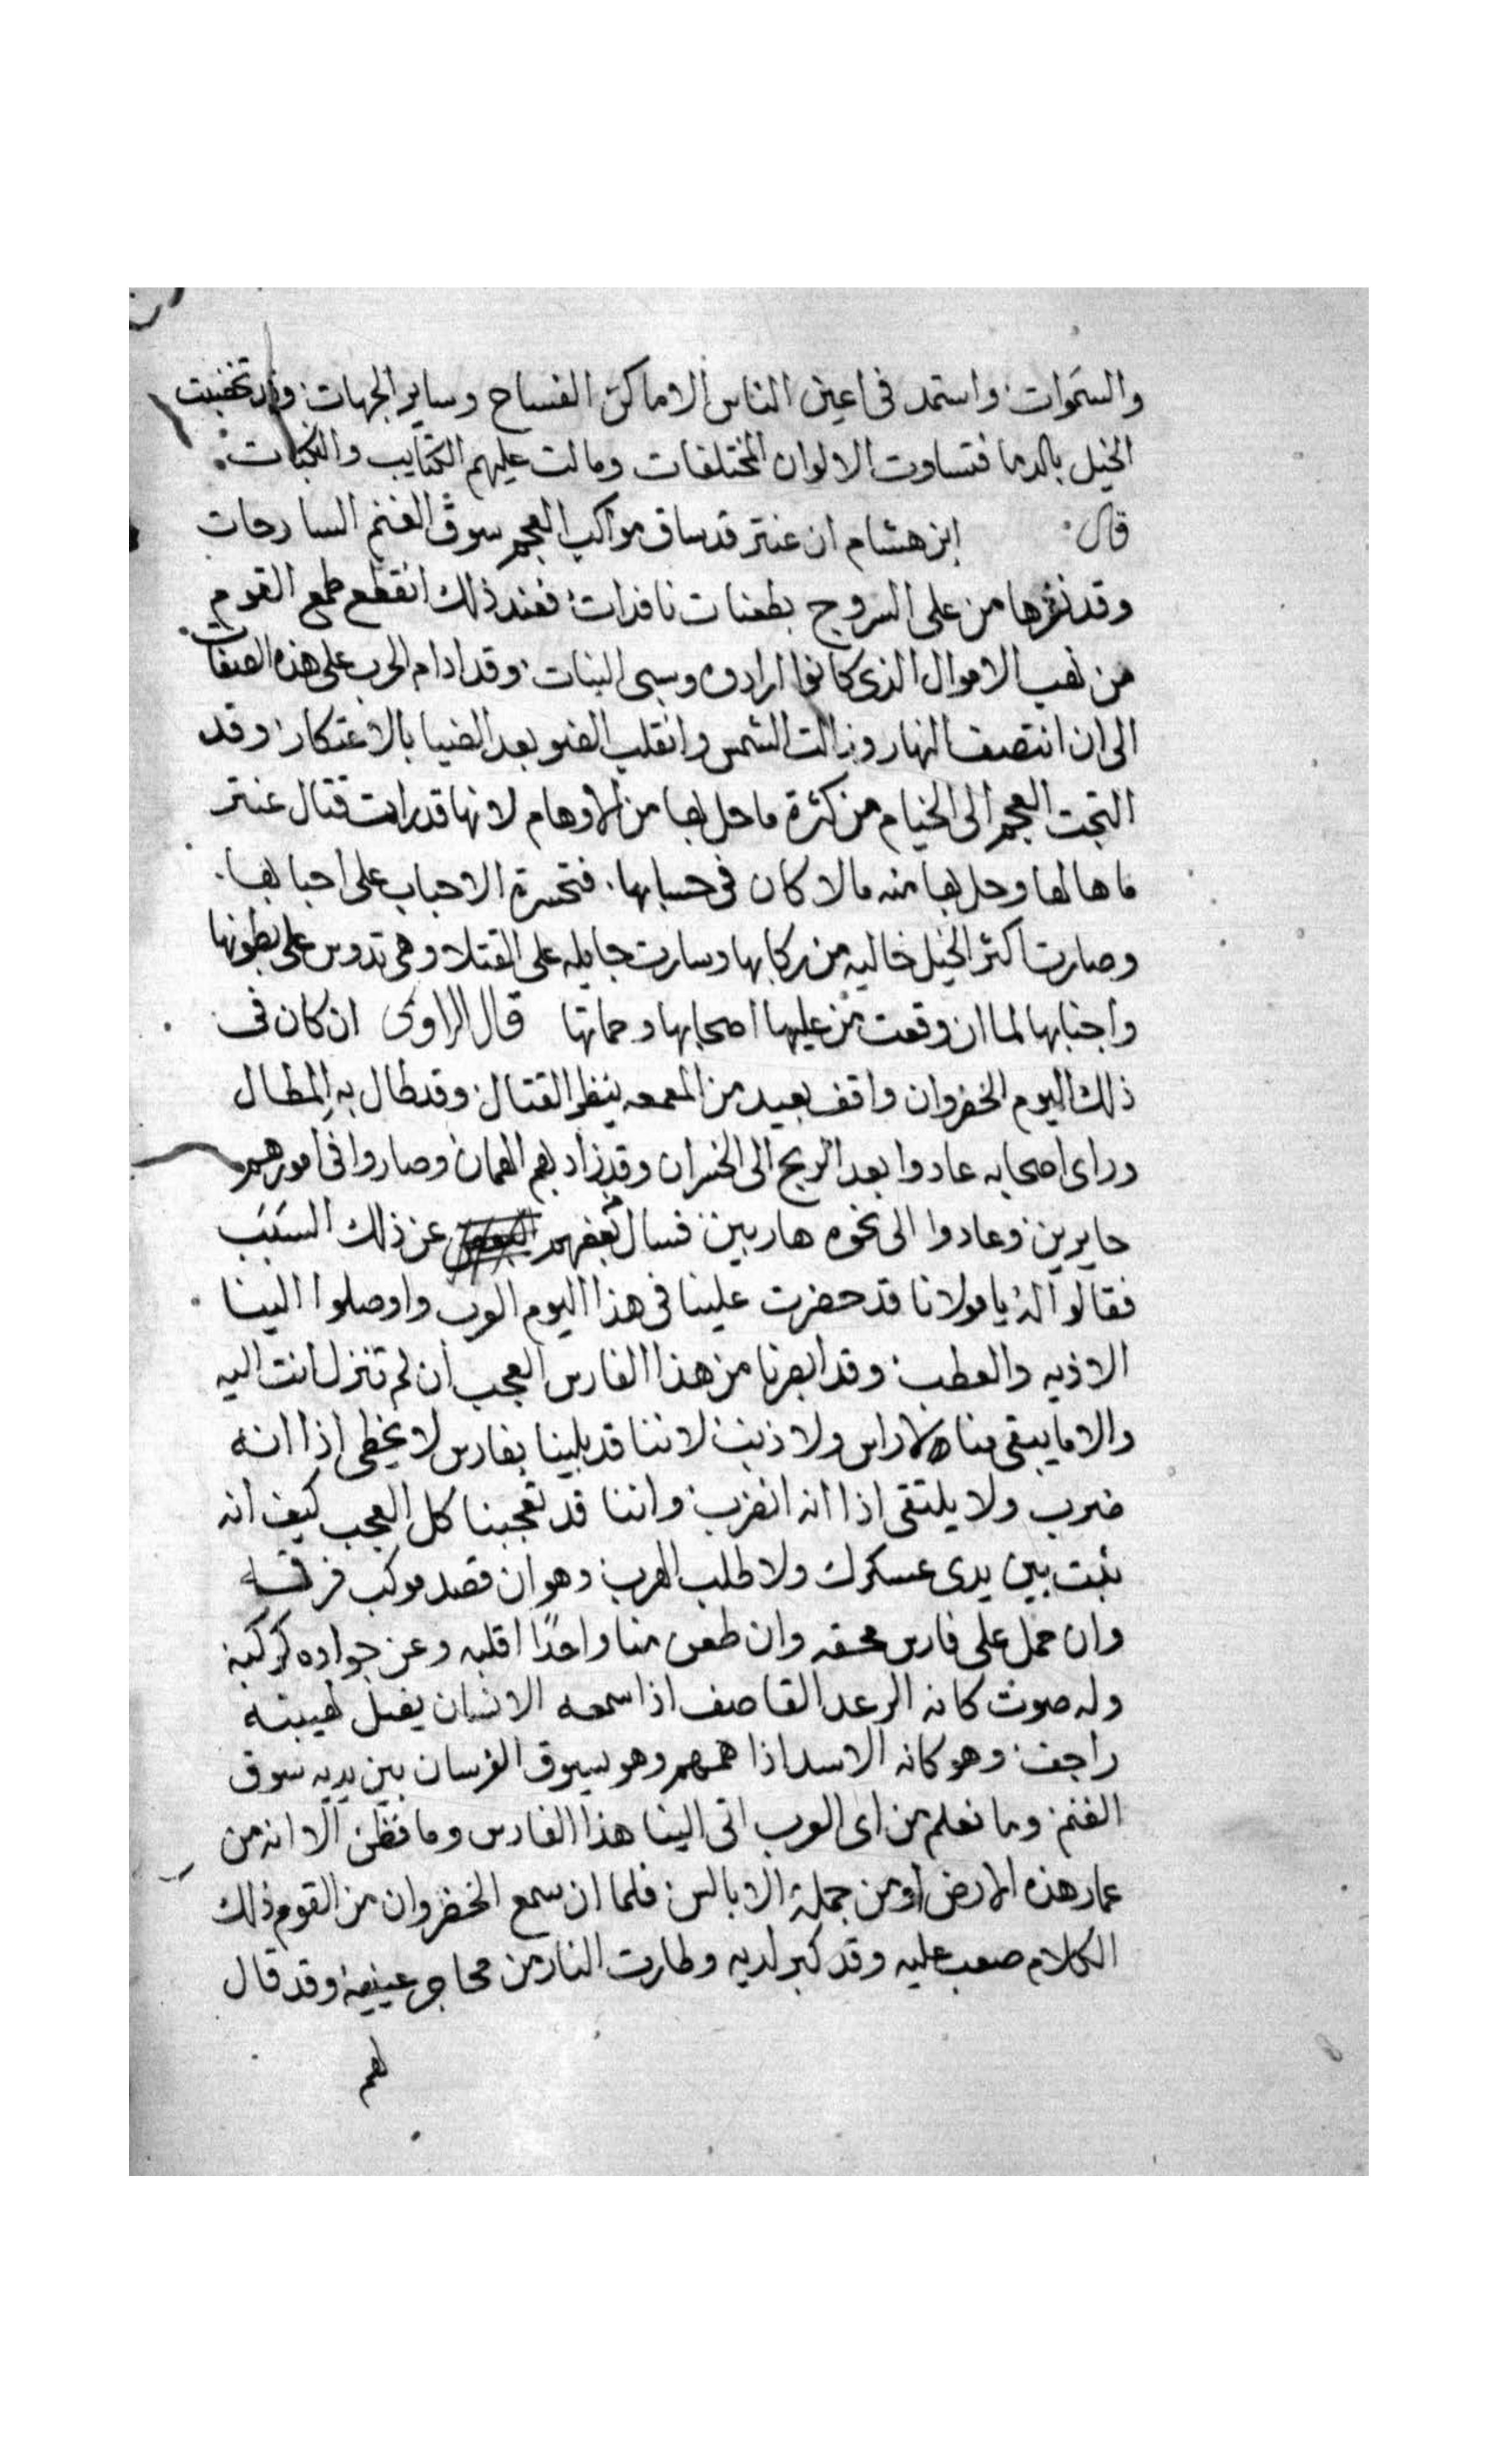 والسموات واستمد فى اعين الناس الاماكن الفساح وساير الجهات وقد تخضبت
الخيل بالدما فتساوت الالوان المختلفات ومالت عليهم الكتايب والنكبات
قال ابن هشام ان عنتر قد ساق مواكب العجم سوق الغنم السارحات
وقد نثرها من على السروج بطعنات نافدات فعند ذلك انقطع طمع القوم
من نهب الاموال الذى كانوا ارادوه وسبى البنات وقد ادام الحرب على هذه الصفات
الى ان انتصف النهار وزالت الشمس وانقلب الضو بعد الضيا بالاعتكار وقد
التجت العجم الى الخيام من كثرة ما حل بها من الاوهام لانها قد رات قتال عنتر
ما هالها وحل بها منه مالا كان فى حسابها فتحسرة الاحباب على احبابها
وصارت اكثر الخيل خاليه من ركابها وسارت جايله على القتلا وهى تدوس على بطونها
واجنابها لما ان وقعت من عليها اصحابها وحماتها قال الراوى ان كان فى
ذلك اليوم الخضروان واقف بعيد من المعمعه ينظر القتال وقد طال به المطال
وراى اصحابه عادوا بعد الربح الى الخسران وقد زاد بهم الهمان وصاروا فى امورهم
حايرين وعادوا الى نحوه هاربين فسال بعضهم عن ذلك السبب
فقالوا له يا مولانا قد حضرت علينا فى هذا اليوم العرب واوصلوا الينا
الاذيه والعطب وقد ابصرنا من هذا الفارس العجب ان لم تنزل انت اليه
والا ما يبقى منا لا راس ولا ذنب لاننا قد بلينا بفارس لا يخطى اذا انه
ضرب ولا يلتقى اذا انه انضرب واننا قد تعجبنا كل العجب كيف انه
ثبت بين يدى عسكرك ولا طلب الهرب وهو ان قصد موكب فرقه
وان حمل على فارس محقه وان طعن منا واحدًا اقلبه وعن جواده كركبه
وله صوت كانه الرعد القاصف اذا سمعه الانسان يضل لهيبته
راجف وهو كانه الاسد اذا همهم وهو يسوق الفرسان بين يديه سوق
الغنم وما نعلم من اى العرب اتى الينا هذا الفارس وما نظن الا انه من
عمار هذه الارض او من جملة الابالس فلما ان سمع الخضروان من القوم ذلك
الكلام صعب عليه وقد كبر لديه وطارت النار من محاجر عينيه وقد قال
لهم